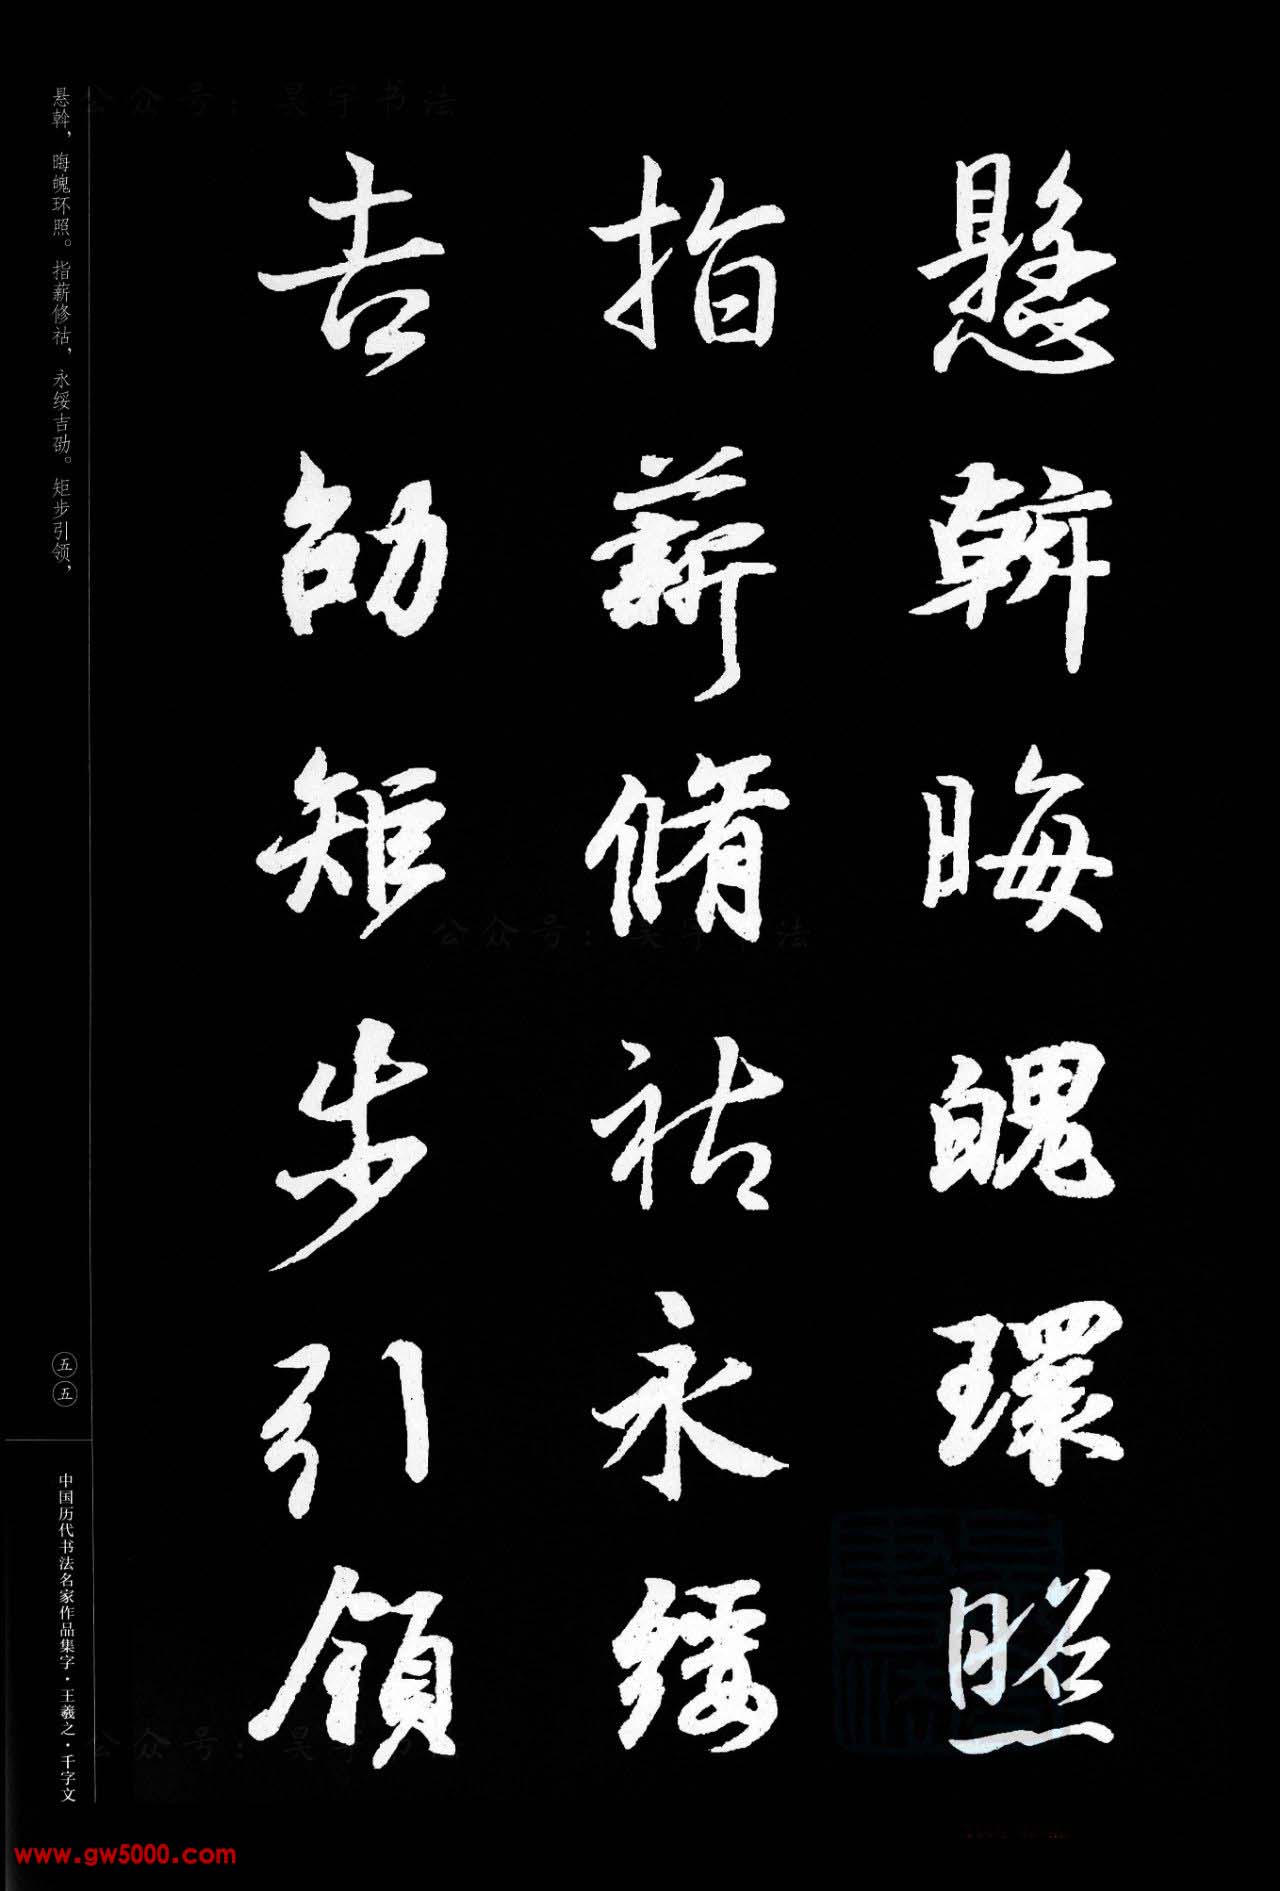 懸斡晦魄環照
指薪脩祜永綏
吉劭矩步引領
悬斡，晦魄环照。指薪修祜，永绥吉劭。矩步引领，
五五
中国历代书法名家作品集字·王羲之·千字文
公众号：昊宇书法
公众号：昊宇书法
公众号：昊宇
www.gw5000.com